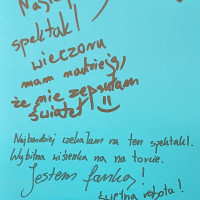 spektakl
wieczoru
mam nadzieję,
że nie zepsułam
świateł :)
Najbardziej czekałam na ten spektakl.
Wybitna wisienka na na torcie.
Jestem fanką!
świetna robota!